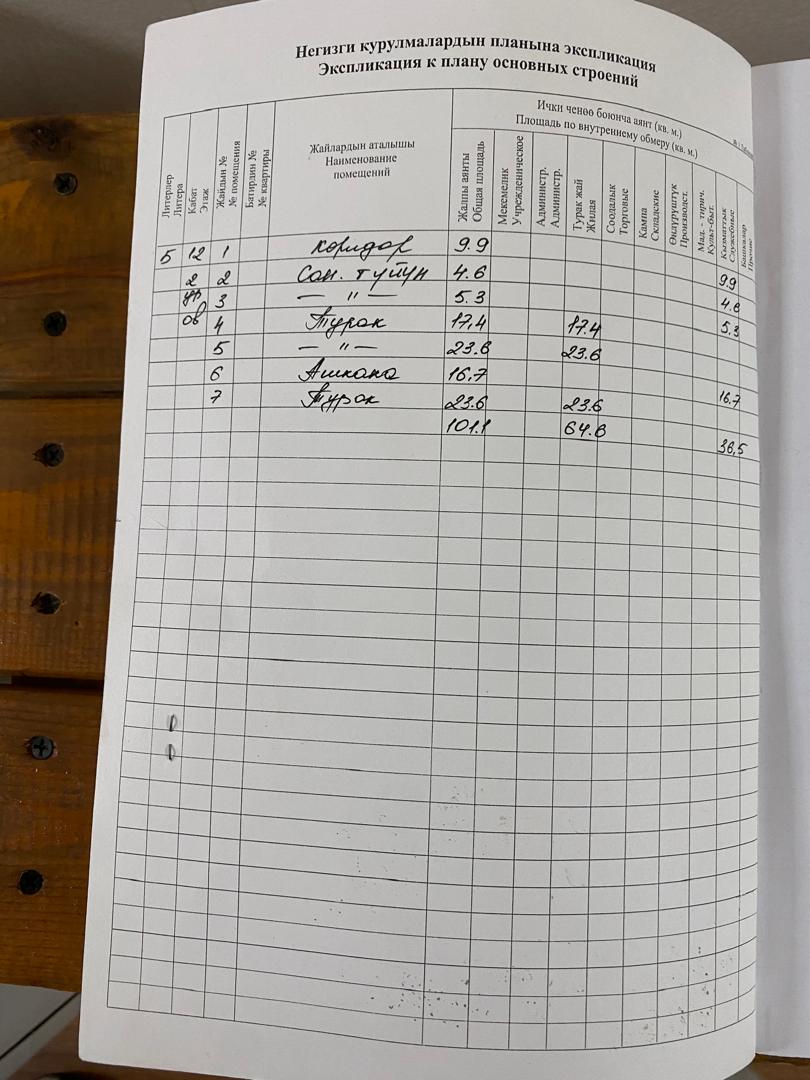 Негизги курулмалардын планына экспликация
Экспликация к плану основных строений
Литерлер Литера
Кабат Этаж
Жайдын № № помещения
Батирдин № № квартиры
Жайлардын аталышы
Наименование
помещений
Ички ченөө боюнча аянт (кв. м.)
Площадь по внутреннему обмеру (кв. м.)
Жалпы аянты Общая площадь
Мекемелик Учрежденическое
Администр. Администр.
Турак жай Жилая
Соодалык Торговые
Кампа Складские
Өндүрүштүк Производст.
Мад. - тирич. Культ-быт.
Кызматтык Служебные
Башкалар Прочие
5 12 1 коридор 9.9 9.9
2 2 Сан. түйүн 4.6 4.6
ур 3 — " — 5.3 5.3
ов 4 Турак 17,4 17.4
5 — " — 23.6 23.6
6 Ашкана 16,7 16,7
7 Турак 23.6 23.6
101.1 64.6 36,5